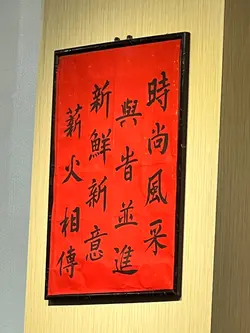 時尚風采
與昔並進
新鮮新意
薪火相傳